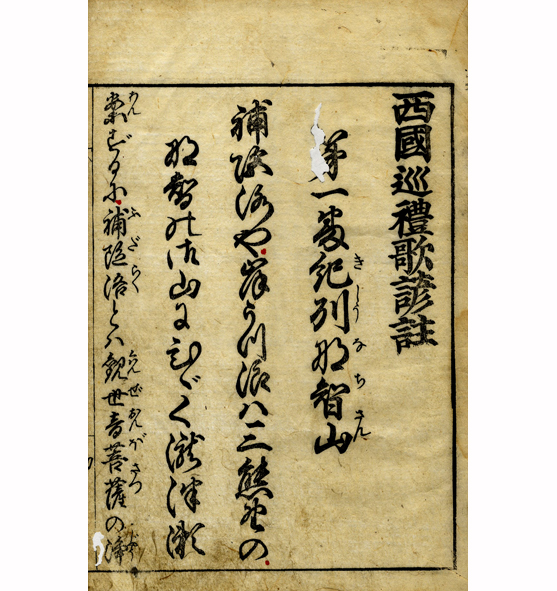 西國巡禮歌諺註
第一番紀州那智山
きしうなちさん
補陀洛や岸うつ波ハ三熊野の
那智の御山にひゞく瀧津瀬
案ずるに補陀洛とハ観世音菩薩の浄
あんふだらくくわんぜおんぼさつじやう